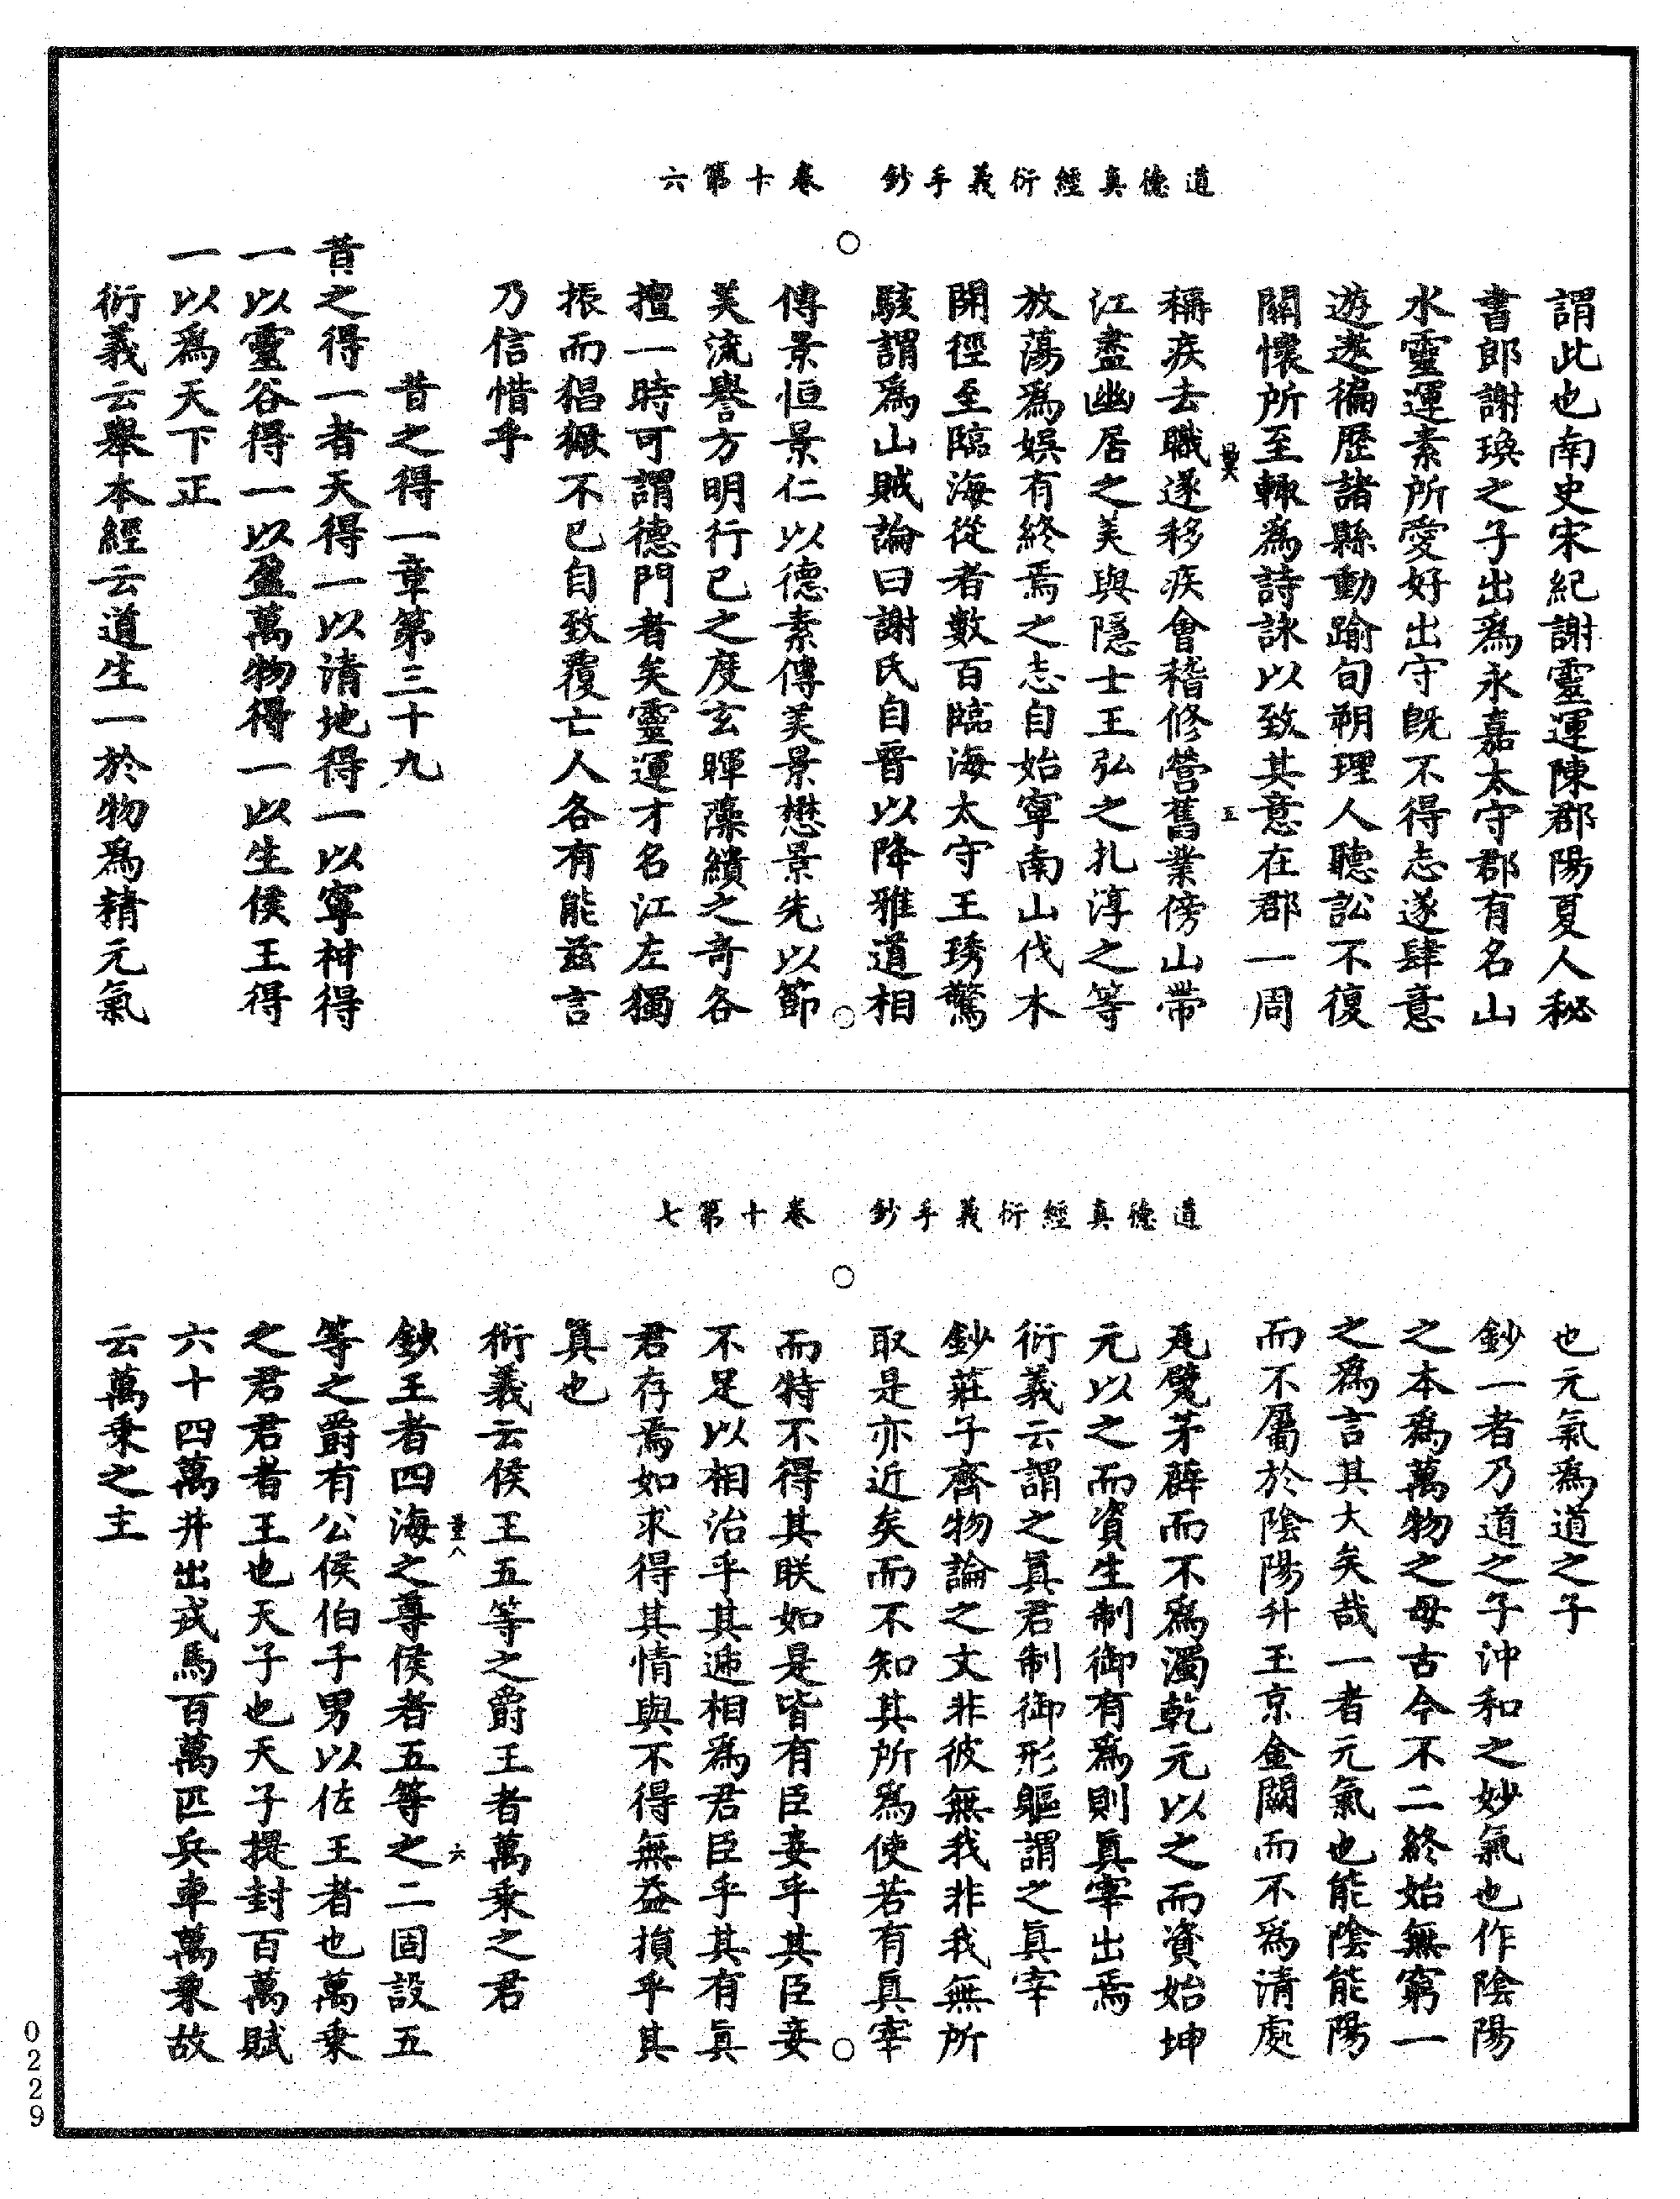 道德真經衍義手鈔　卷十第六
謂此也南史宋紀謝靈運陳郡陽夏人秘
書郎謝瑍之子出爲永嘉太守郡有名山
水靈運素所愛好出守旣不得志遂肆意
遊遨徧歷諸縣動踰旬朔理人聽訟不復
關懷所至輙爲詩詠以致其意在郡一周
五
稱疾去職遂移疾會稽修營舊業傍山帶
江盡幽居之美與隱士王弘之扎淳之等
放蕩爲娛有終焉之志自始寧南山伐木
開徑至臨海從者數百臨海太守王琇驚
駭謂爲山賊論曰謝氏自晉以降雅道相
傳景恒景仁以德素傳美景懋景先以節
美流譽方明行己之度玄暉藻繢之奇各
擅一時可謂德門者矣靈運才名江左獨
振而猖獗不已自致覆亡人各有能茲言
乃信惜乎
昔之得一章第三十九
昔之得一者天得一以清地得一以寧神得
一以靈谷得一以盈萬物得一以生侯王得
一以爲天下正
衍義云舉本經云道生一於物爲精元氣
道德真經衍義手鈔　卷十第七
也元氣爲道之子
鈔一者乃道之子沖和之妙氣也作陰陽
之本爲萬物之母古今不二終始無窮一
之爲言其大矣哉一者元氣也能陰能陽
而不屬於陰陽升玉京金闕而不爲清處
瓦甓茅薜而不爲濁乾元以之而資始坤
元以之而資生制御有爲則眞宰出焉
衍義云謂之眞君制御形軀謂之眞宰
鈔莊子齊物論之文非彼無我非我無所
取是亦近矣而不知其所爲使若有真宰
而特不得其眹如是皆有臣妾乎其臣妾
不足以相治乎其遞相爲君臣乎其有眞
君存焉如求得其情與不得無益損乎其
眞也
衍義云侯王五等之爵王者萬乘之君
六
鈔王者四海之尊侯者五等之二固設五
等之爵有公侯伯子男以佐王者也萬乘
之君君者王也天子也天子提封百萬賦
六十四萬井出戎馬百萬匹兵車萬乘故
云萬乘之主
0229